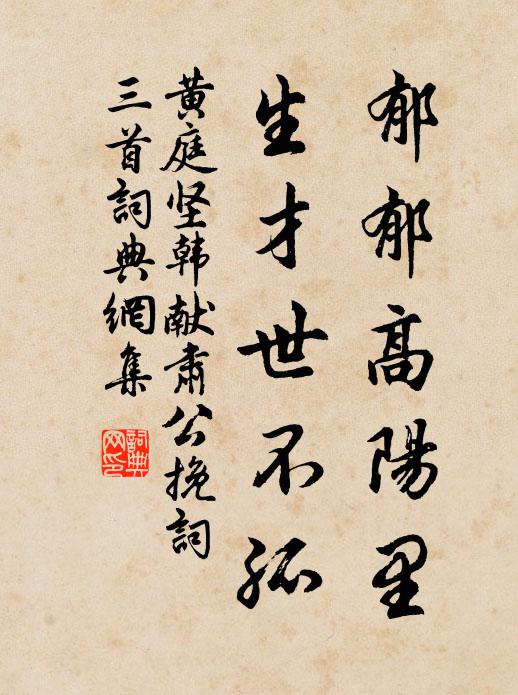 郁郁高陽里
生才世不孤
黄庭坚韩献肃公挽詞
三首詞典網集
詞典網印